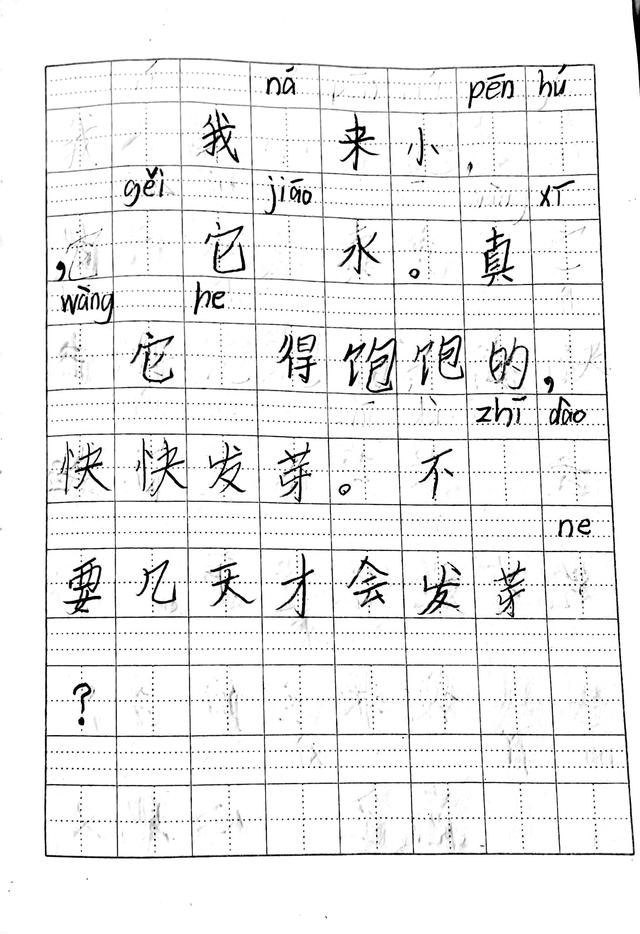 ná pēn hú
我 来小,
gěi jiāo xī
,它 水。真
wàng he
它 得饱饱的,
zhī dào
快快发芽。不
ne
要几天才会发芽
?